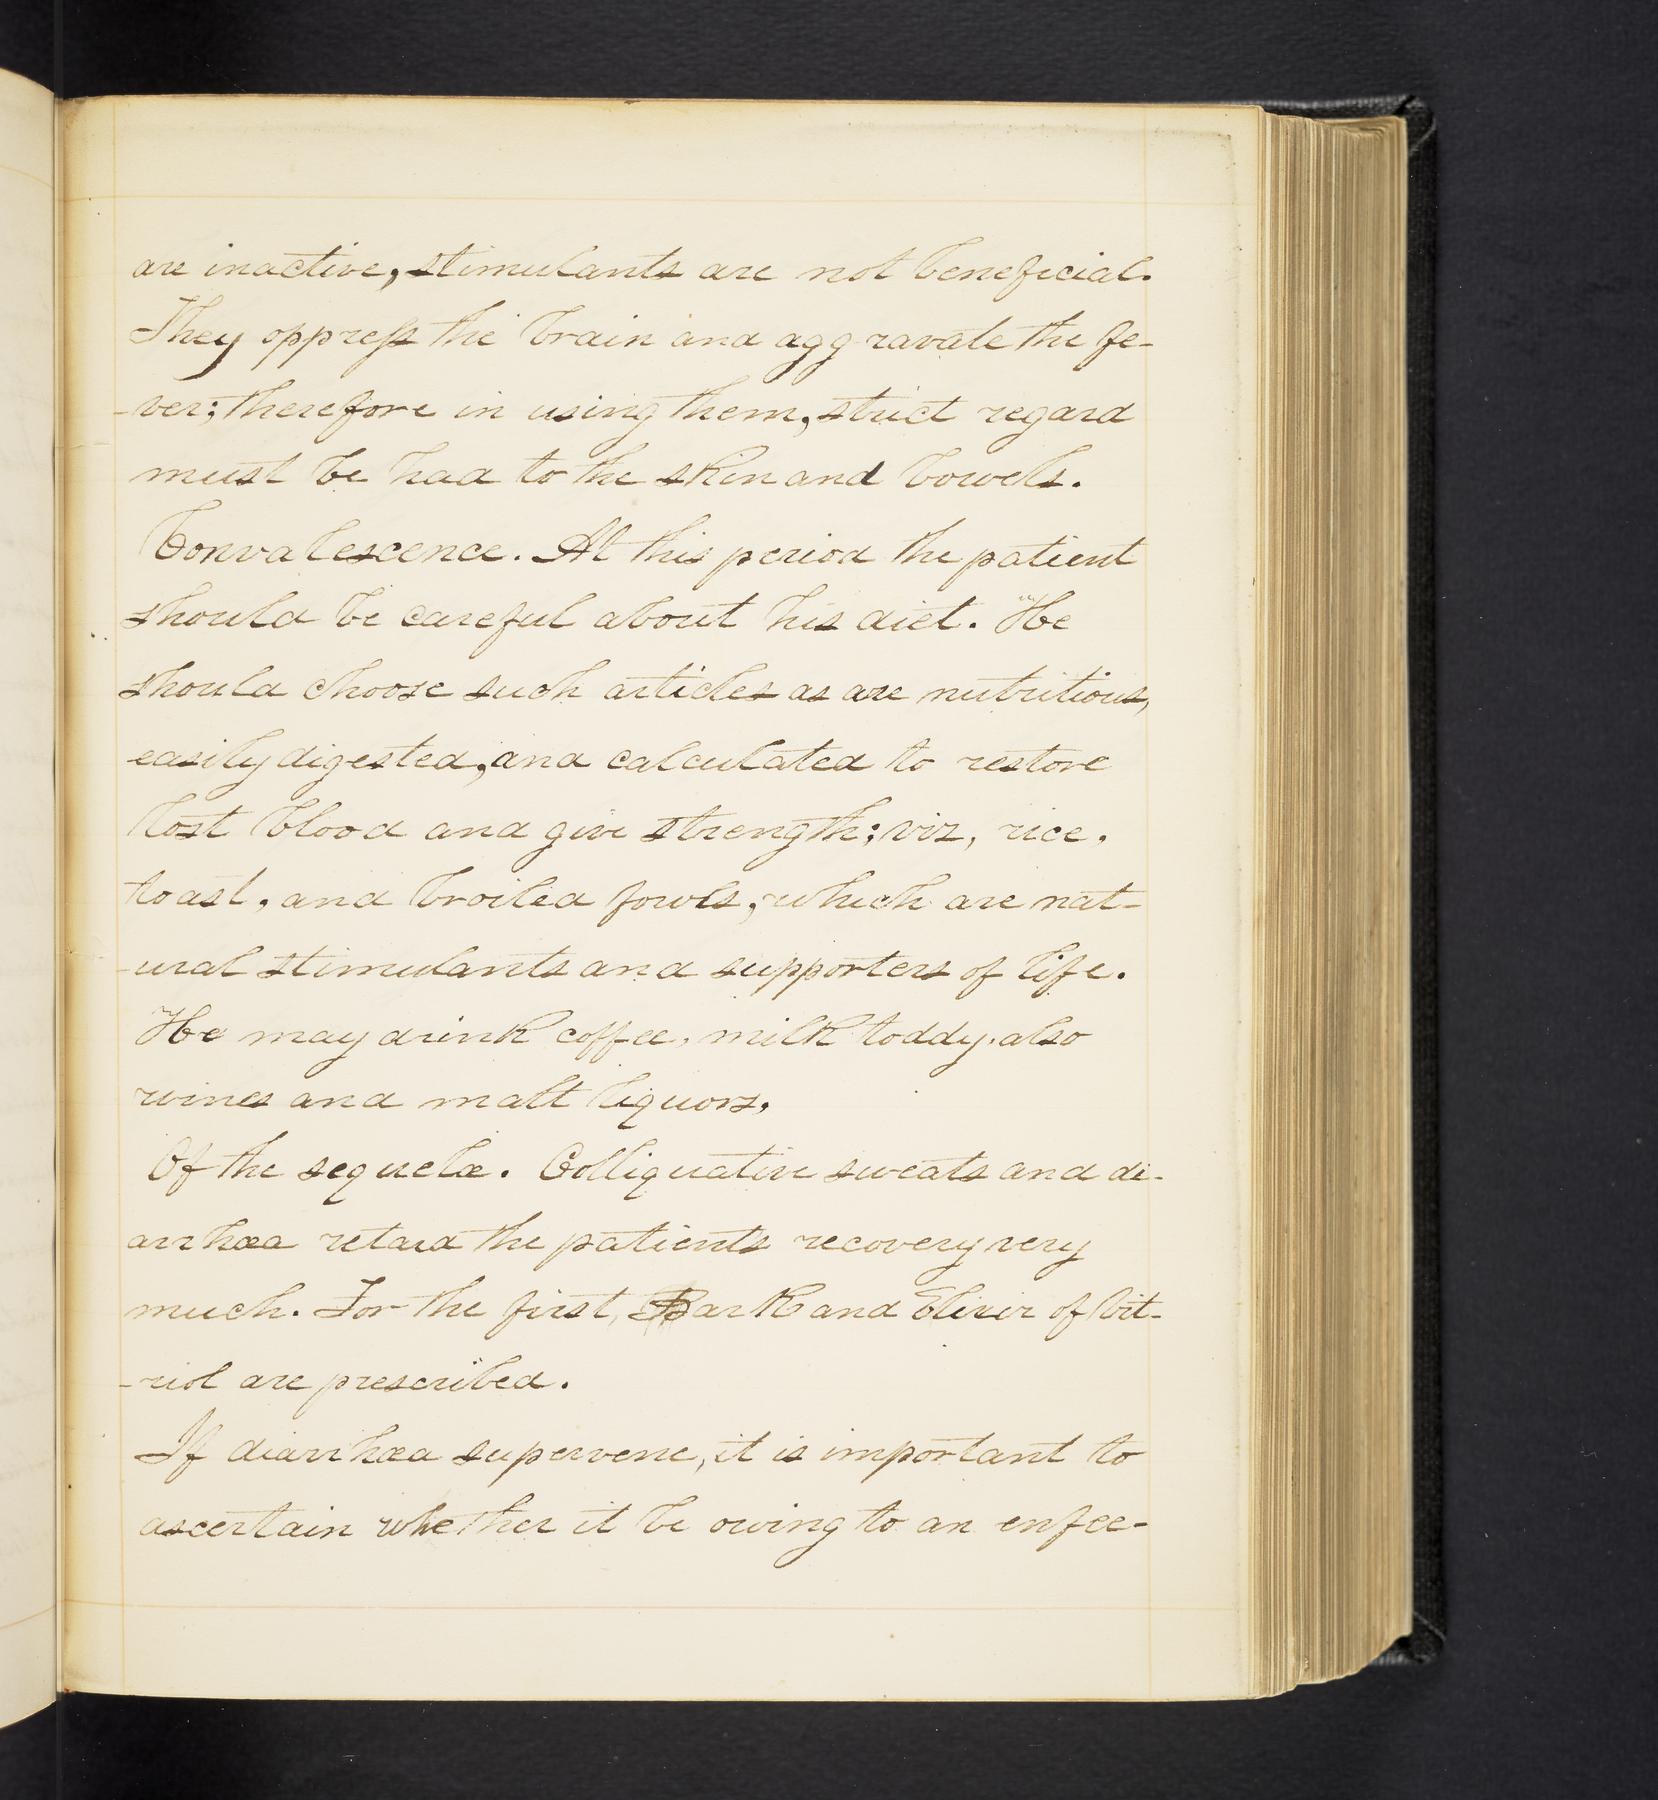 are inactive, stimulants are not beneficial.
They oppress the brain and aggravate the fe-
-ver; therefore in using them, strict regard
must be had to the skin and bowels.
Convalescence. At this period the patient
should be careful about his diet. He
should choose such articles as are nutritious,
easily digested, and calculated to restore
lost blood and give strength; viz, rice,
toast, and broiled fowls, which are nat-
-ural stimulants and supporters of life.
He may drink coffee, milk toddy, also
wines and malt liquors,
Of the sequelæ. Colliquative sweats and di-
arrhœa retard the patients recovery very
much. For the first, Bark and Elixir of Vit-
-riol are prescribed.
If diarrhœa supervene, it is important to
ascertain whether it be owing to an enfee-